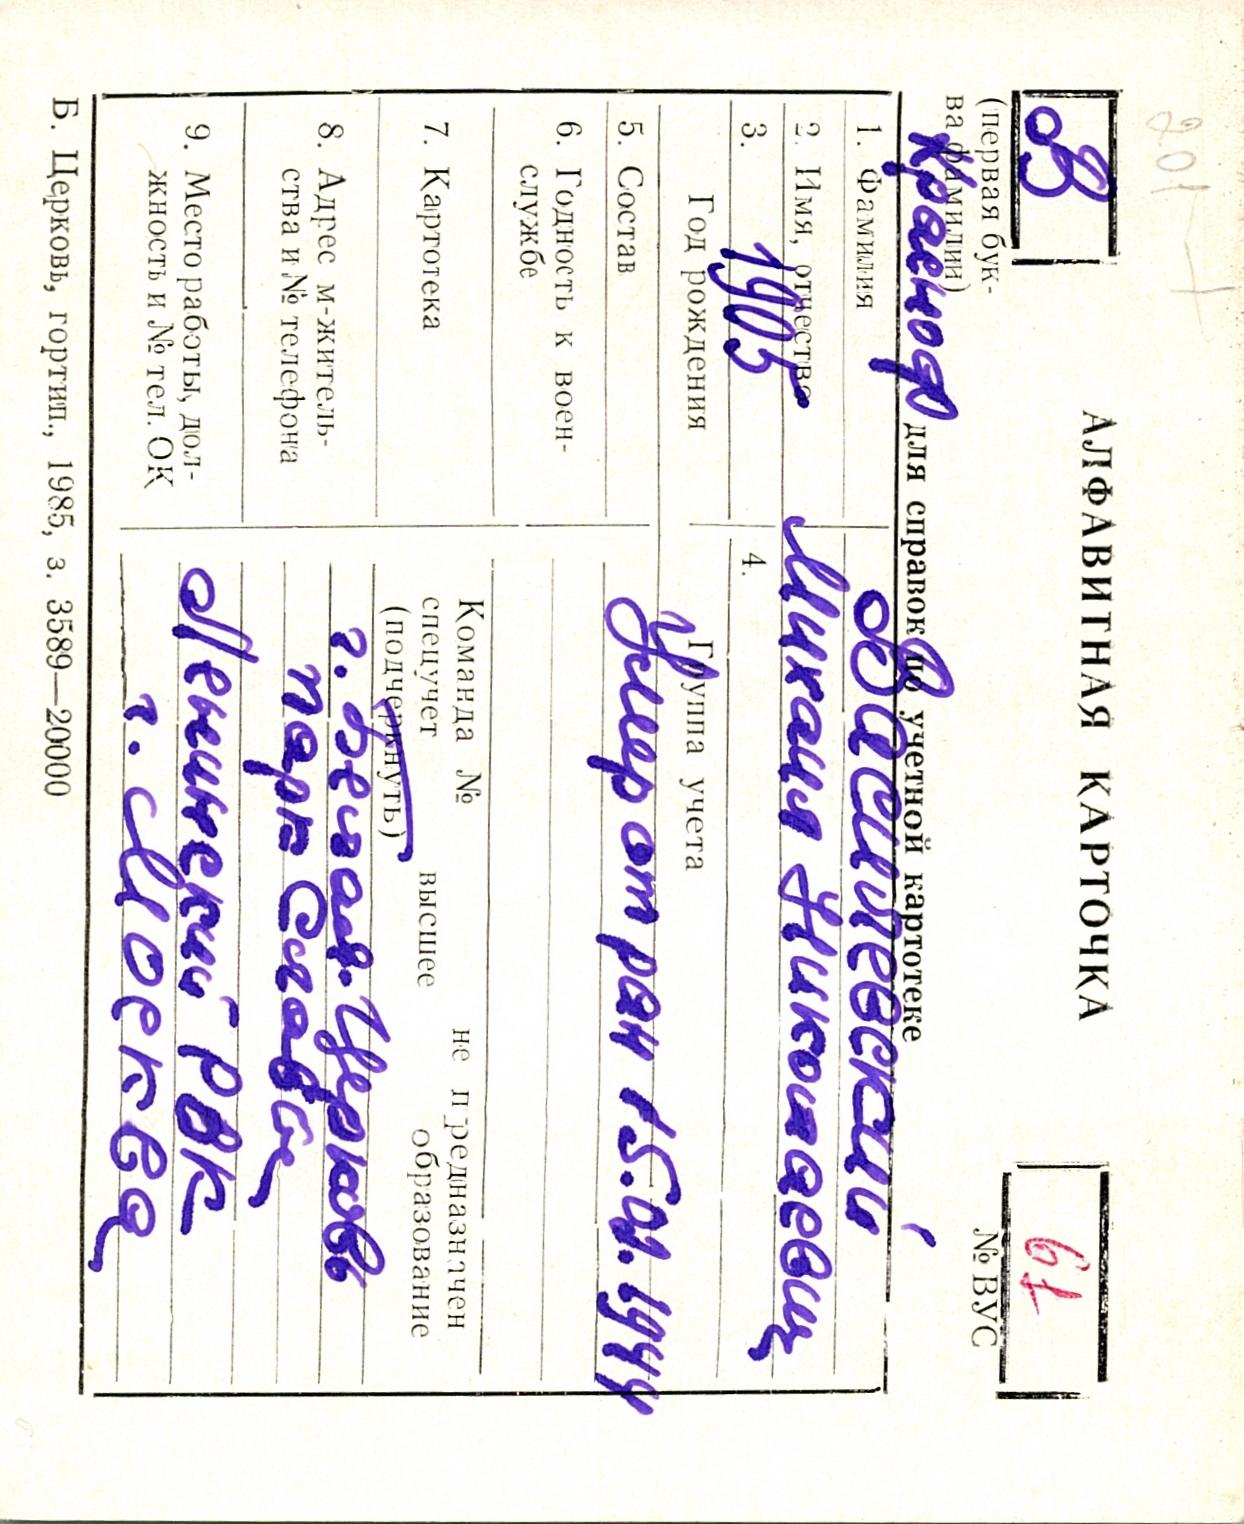 АЛФАВИТНАЯ КАРТОЧКА
В
(первая бук-
ва фамилии)
61
№ ВУС
Красноф
для справок по учетной картотеке
1. Фамилия
Василевский
2. Имя, отчество
Михаил Николаевич
3. 1905
Год рождения
4.
Группа учета
5. Состав
Умер от ран 15.01.1944
6. Годность к воен-
службе
7. Картотека
Команда № не предназначен
спецучет высшее образование
(подчеркнуть)
8. Адрес м-житель-
ства и № телефона
г. Белая-Церковь
парк Слави
9. Место работы, дол-
жность и № тел. ОК
Ленинский РВК
г. Москва
Б. Церковь, гортип., 1985, з. 3589—20000